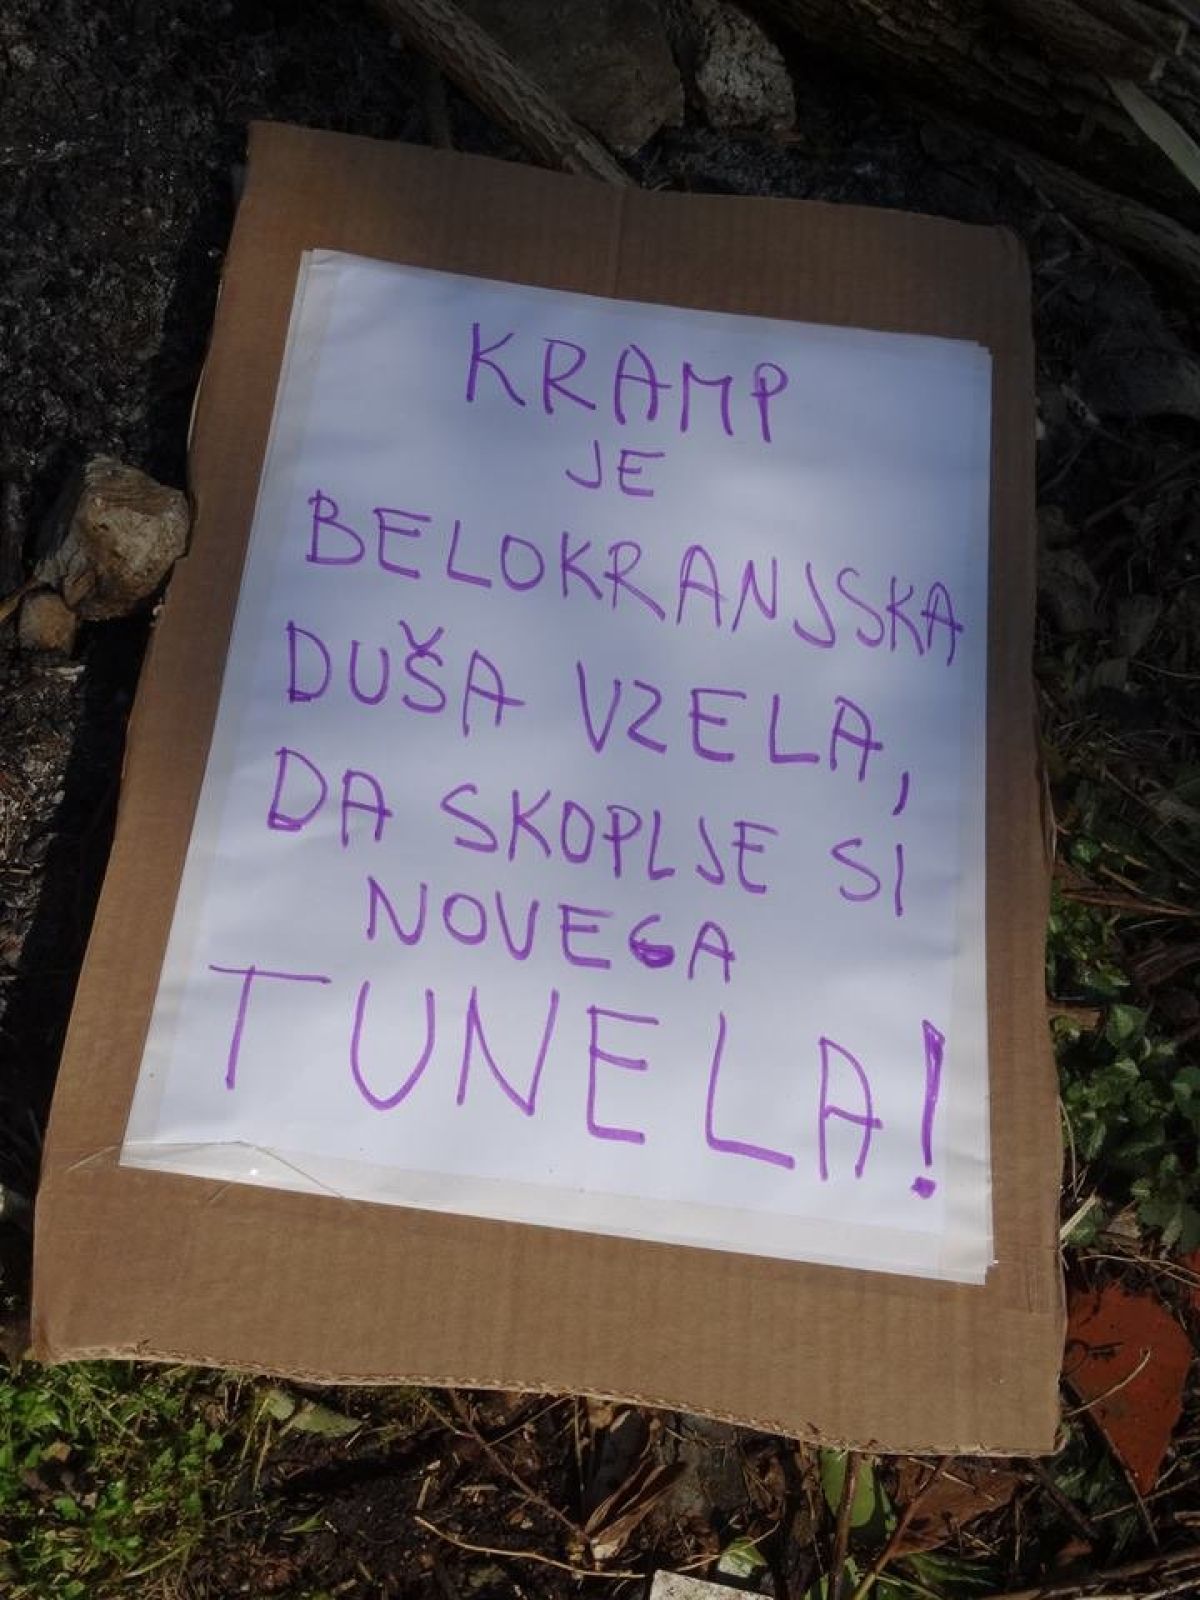 KRAMP
JE
BELOKRANJSKA
DUŠA VZELA,
DA SKOPLJE SI
NOVEGA
TUNELA!